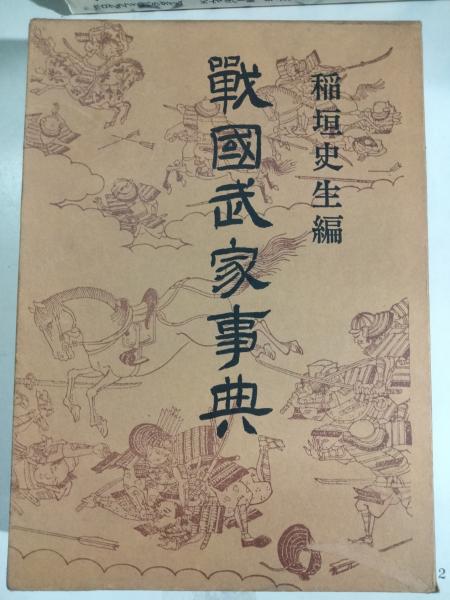 稲垣史生編
戰國武家事典
2